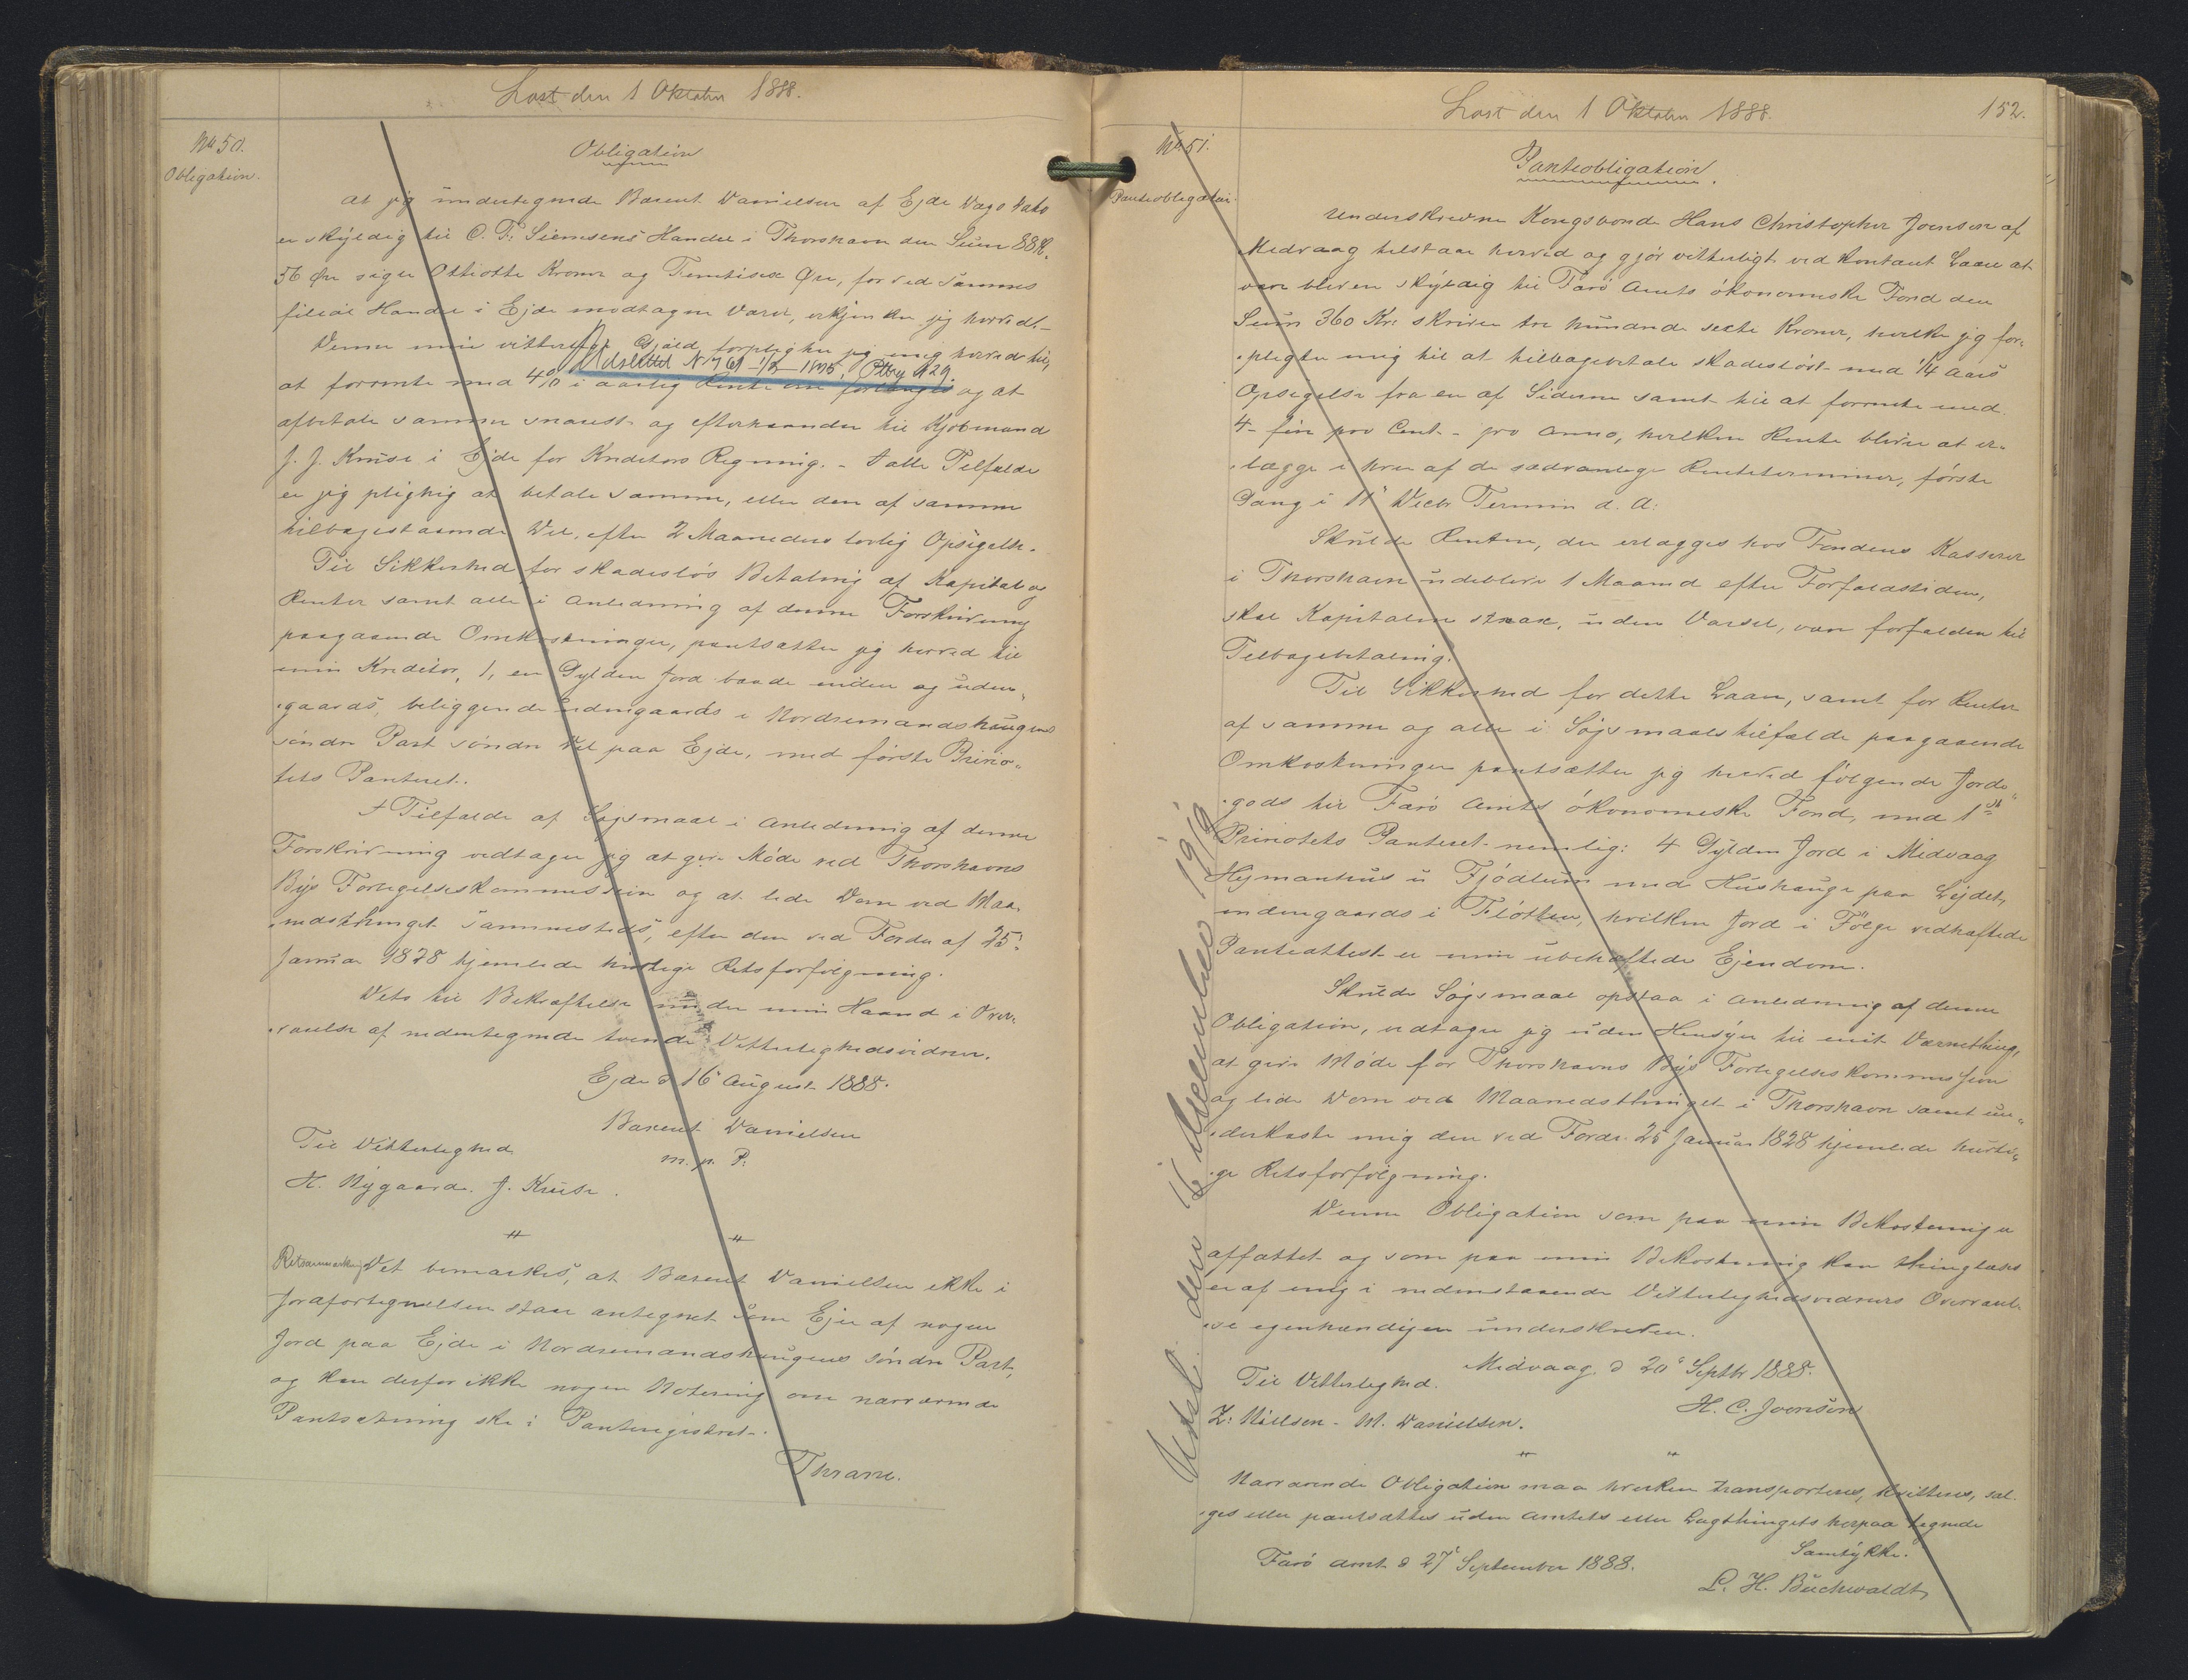 Læst den 1 Oktober 1888.
No 50.
Obligation.
Obligation
At jeg undertegnede Barent Danielsen af Ejde
er skyldig til C. F. Siemsens Handel i Thorshavn den Sum 88 K.
56 Øre siger Ottiotte Kroner og Femtisex Øre, for ved sammes
filial Handel i Ejde modtagne Varer, erkjender jeg herved.
Denne min vitterlige Gjæld forpligter jeg mig herved til,
Udslettet N 761 1/3 1905, Ptbg N 29
at forrente med 4% i aarlig Rente om forlanges og at
afbetale samme snarest og efterhaanden til Kjøbmand
J. J. Kruse i Ejde for Kreditors Regning. - I alle Tilfælde
er jeg pligtig at betale samme, eller den af samme
tilbagestaaende Del, efter 2 Maaneders lovlig Opsigelse.
Til Sikkerhed for skadesløs Betaling af Kapital og
Renter samt alle i Anledning af denne Forskrivning
paagaaende Omkostninger, pantsætter jeg herved til
min Kreditor, 1, en Gylden Jord baade inden og uden„
„gaards, beliggende indengaards i Nordremandshaugens
søndre Part søndre Del paa Ejde, med første Priori„
tets Panteret.
I Tilfælde af Søgsmaal i Anledning af denne
Forskrivning vedtager jeg at give Møde ved Thorshavns
Bys Forligelseskommission og at lide Dom ved Maa„
„nedsthinget sammesteds, efter den ved Fordn af 25'
Januar 1828 hjemlede hurtige Retsforfølgning.
Dets til Bekræftelse under min Haand i Over„
„værelse af nedentegnede tvende Vitterlighedsvidner.
Ejde d 16' August 1888.
Barent Danielsen
m. p. P.
Til Vitterlighed
H. Nygaard. J. Kruse.
Retsanmærkning Det bemærkes, at Barent Danielsen ikke i
Jordfortegnelsen staar antegnet som Ejer af nogen
Jord paa Ejde i Nordremandshaugens søndre Part,
og kan derfor ikke nogen Notering om nærværende
Pantsætning ske i Panteregistret.
Thrane.
Læst den 1 Oktober 1888.
152.
No 51.
Panteobligation.
Panteobligation.
Underskrevne Kongsbonde Hans Christopher Joensen af
Midvaag tilstaar herved og gjør vitterligt ved kontant Laan at
være bleven skyldig til Færø Amts økonomiske Fond den
Sum 360 Kr: skriver tre hundrede sexti Kroner, hvilke jeg for„
„pligter mig til at tilbagebetale skadesløst med 1/4 Aars
Opsigelse fra en af Siderne samt til at forrente med
4 - fire pro Cent - pro anno, hvilken Rente bliver at er„
„lægge i hver af de sædvanlige Renteterminer, første
Gang i 11' Decbr Termin d. A:
Skulde Renten, der erlægges hos Fondens Kasserer
i Thorshavn udeblive 1 Maaned efter Forfaldstiden,
skal Kapitalen strax, uden Varsel, være forfalden til
Tilbagebetaling.
Til Sikkerhed for dette Laan, samt for Renter
af samme og alle i Søgsmaalstilfælde paagaaende
Omkostninger pantsætter jeg herved følgende Jorde„
„gods til Færø Amts økonomiske Fond, med 1ste
Prioritets Panteret nemlig: 4 Gylden Jord i Midvaag
Hejmantrus u Fjødlum med Hushauge paa Lejdet,
indengaards i Fløtten, hvilken Jord i Følge vedhæftede
Panteattest er min ubehæftede Ejendom.
Skulde Søgsmaal opstaa i Anledning af denne
Obligation, vedtager jeg uden Hensyn til mit Værnething,
at give Møde for Thorshavns Bys Forligelseskommission
og lide Dom ved Maanedsthinget i Thorshavn samt un„
„derkaste mig den ved Fordn. 25 Januar 1828 hjemlede hurti„
„ge Retsforfølgning.
Denne Obligation som paa min Bekostning er
affattet og som paa min Bekostning kan thinglæses
er af mig i nedenstaaende Vitterlighedsvidners Overværel„
„se egenhændigen underskreven.
Midvaag, d 20' Septbr 1888.
Til Vitterlighed.
H. C. Joensen
Z: Nielsen - M. Danielsen.
Nærværende Obligation maa hverken transporteres, kvitteres, sæl„
„ges eller pantsættes uden Amtets eller Lagthingets herpaa tegnede
Samtykke.
Færø Amt d 27' September 1888.
L. H. Buchwaldt
Udsl. den 16 December 1919